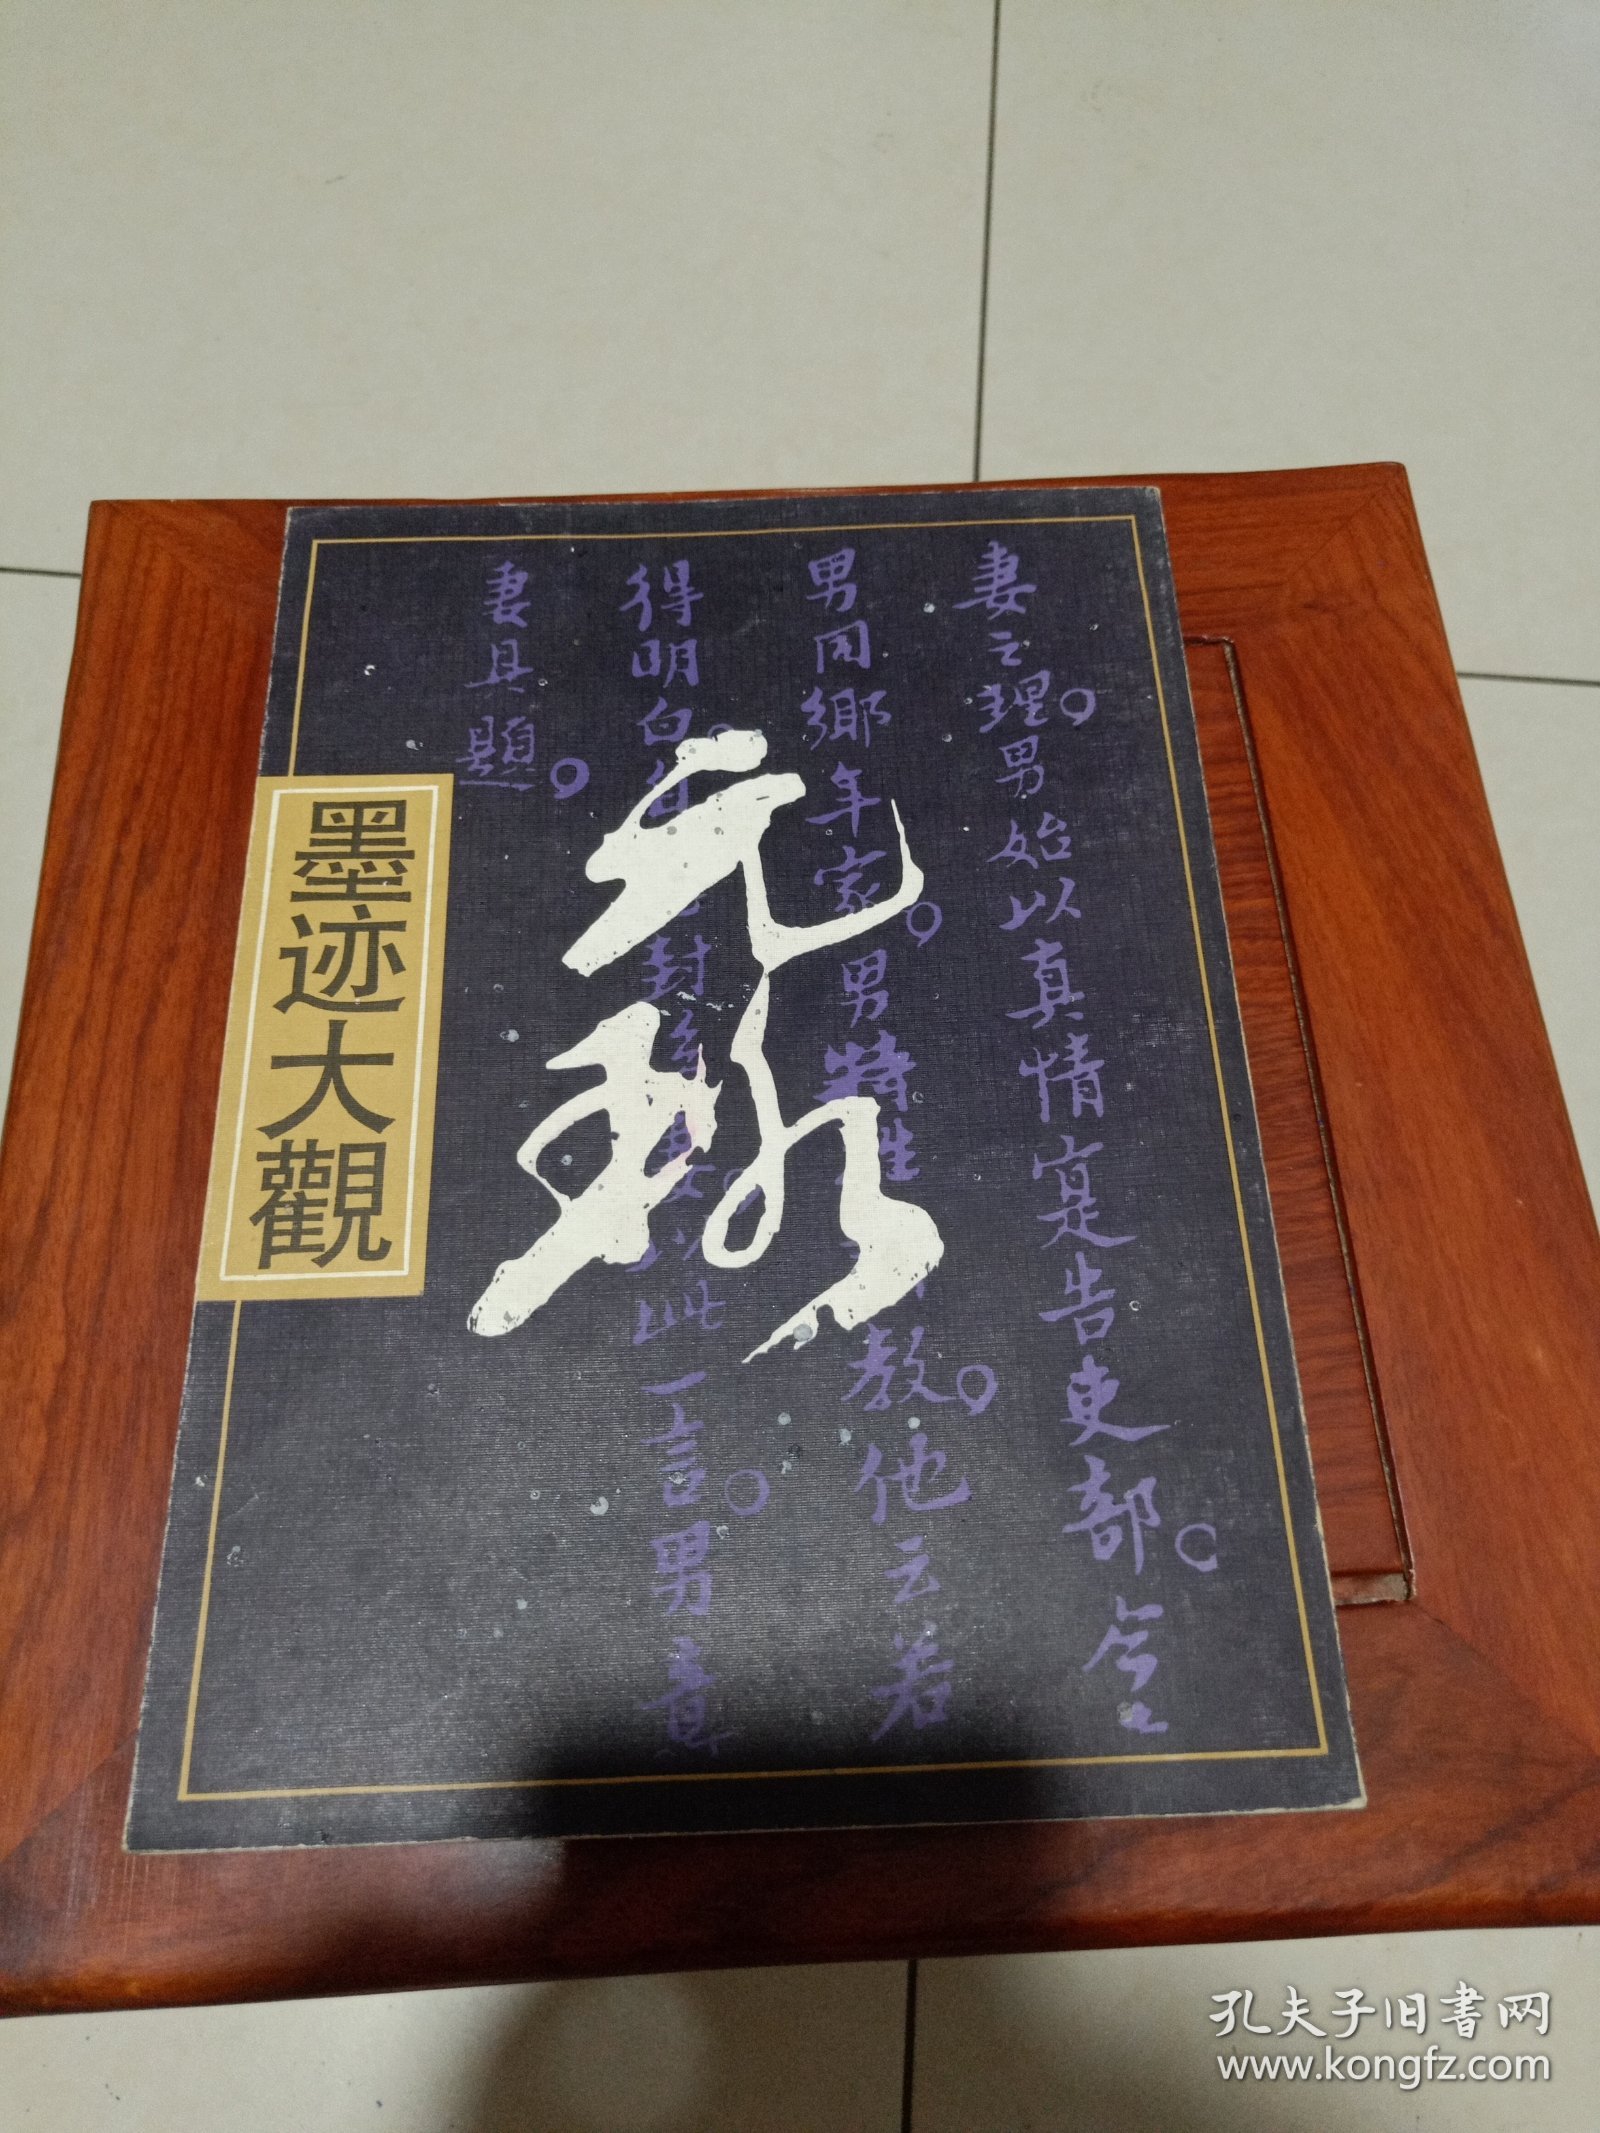 妻之理男始以真情寔告吏部
男同鄉年家男特
教他云若
得明白
封
以此一言男意
妻具題
元璐
墨迹大觀
孔夫子旧书网
www.kongfz.com